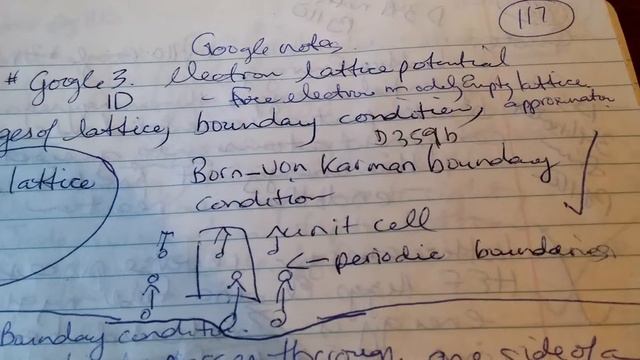 117
Google notes
# Google 3. electron lattice potential
1D - Free electron model, Empty lattice
ges of lattice, boundary condition, approximation
D359b
lattice Born-von Karman boundary
condition
unit cell
<- periodic boundaries
Boundary condition.
through, one side of a